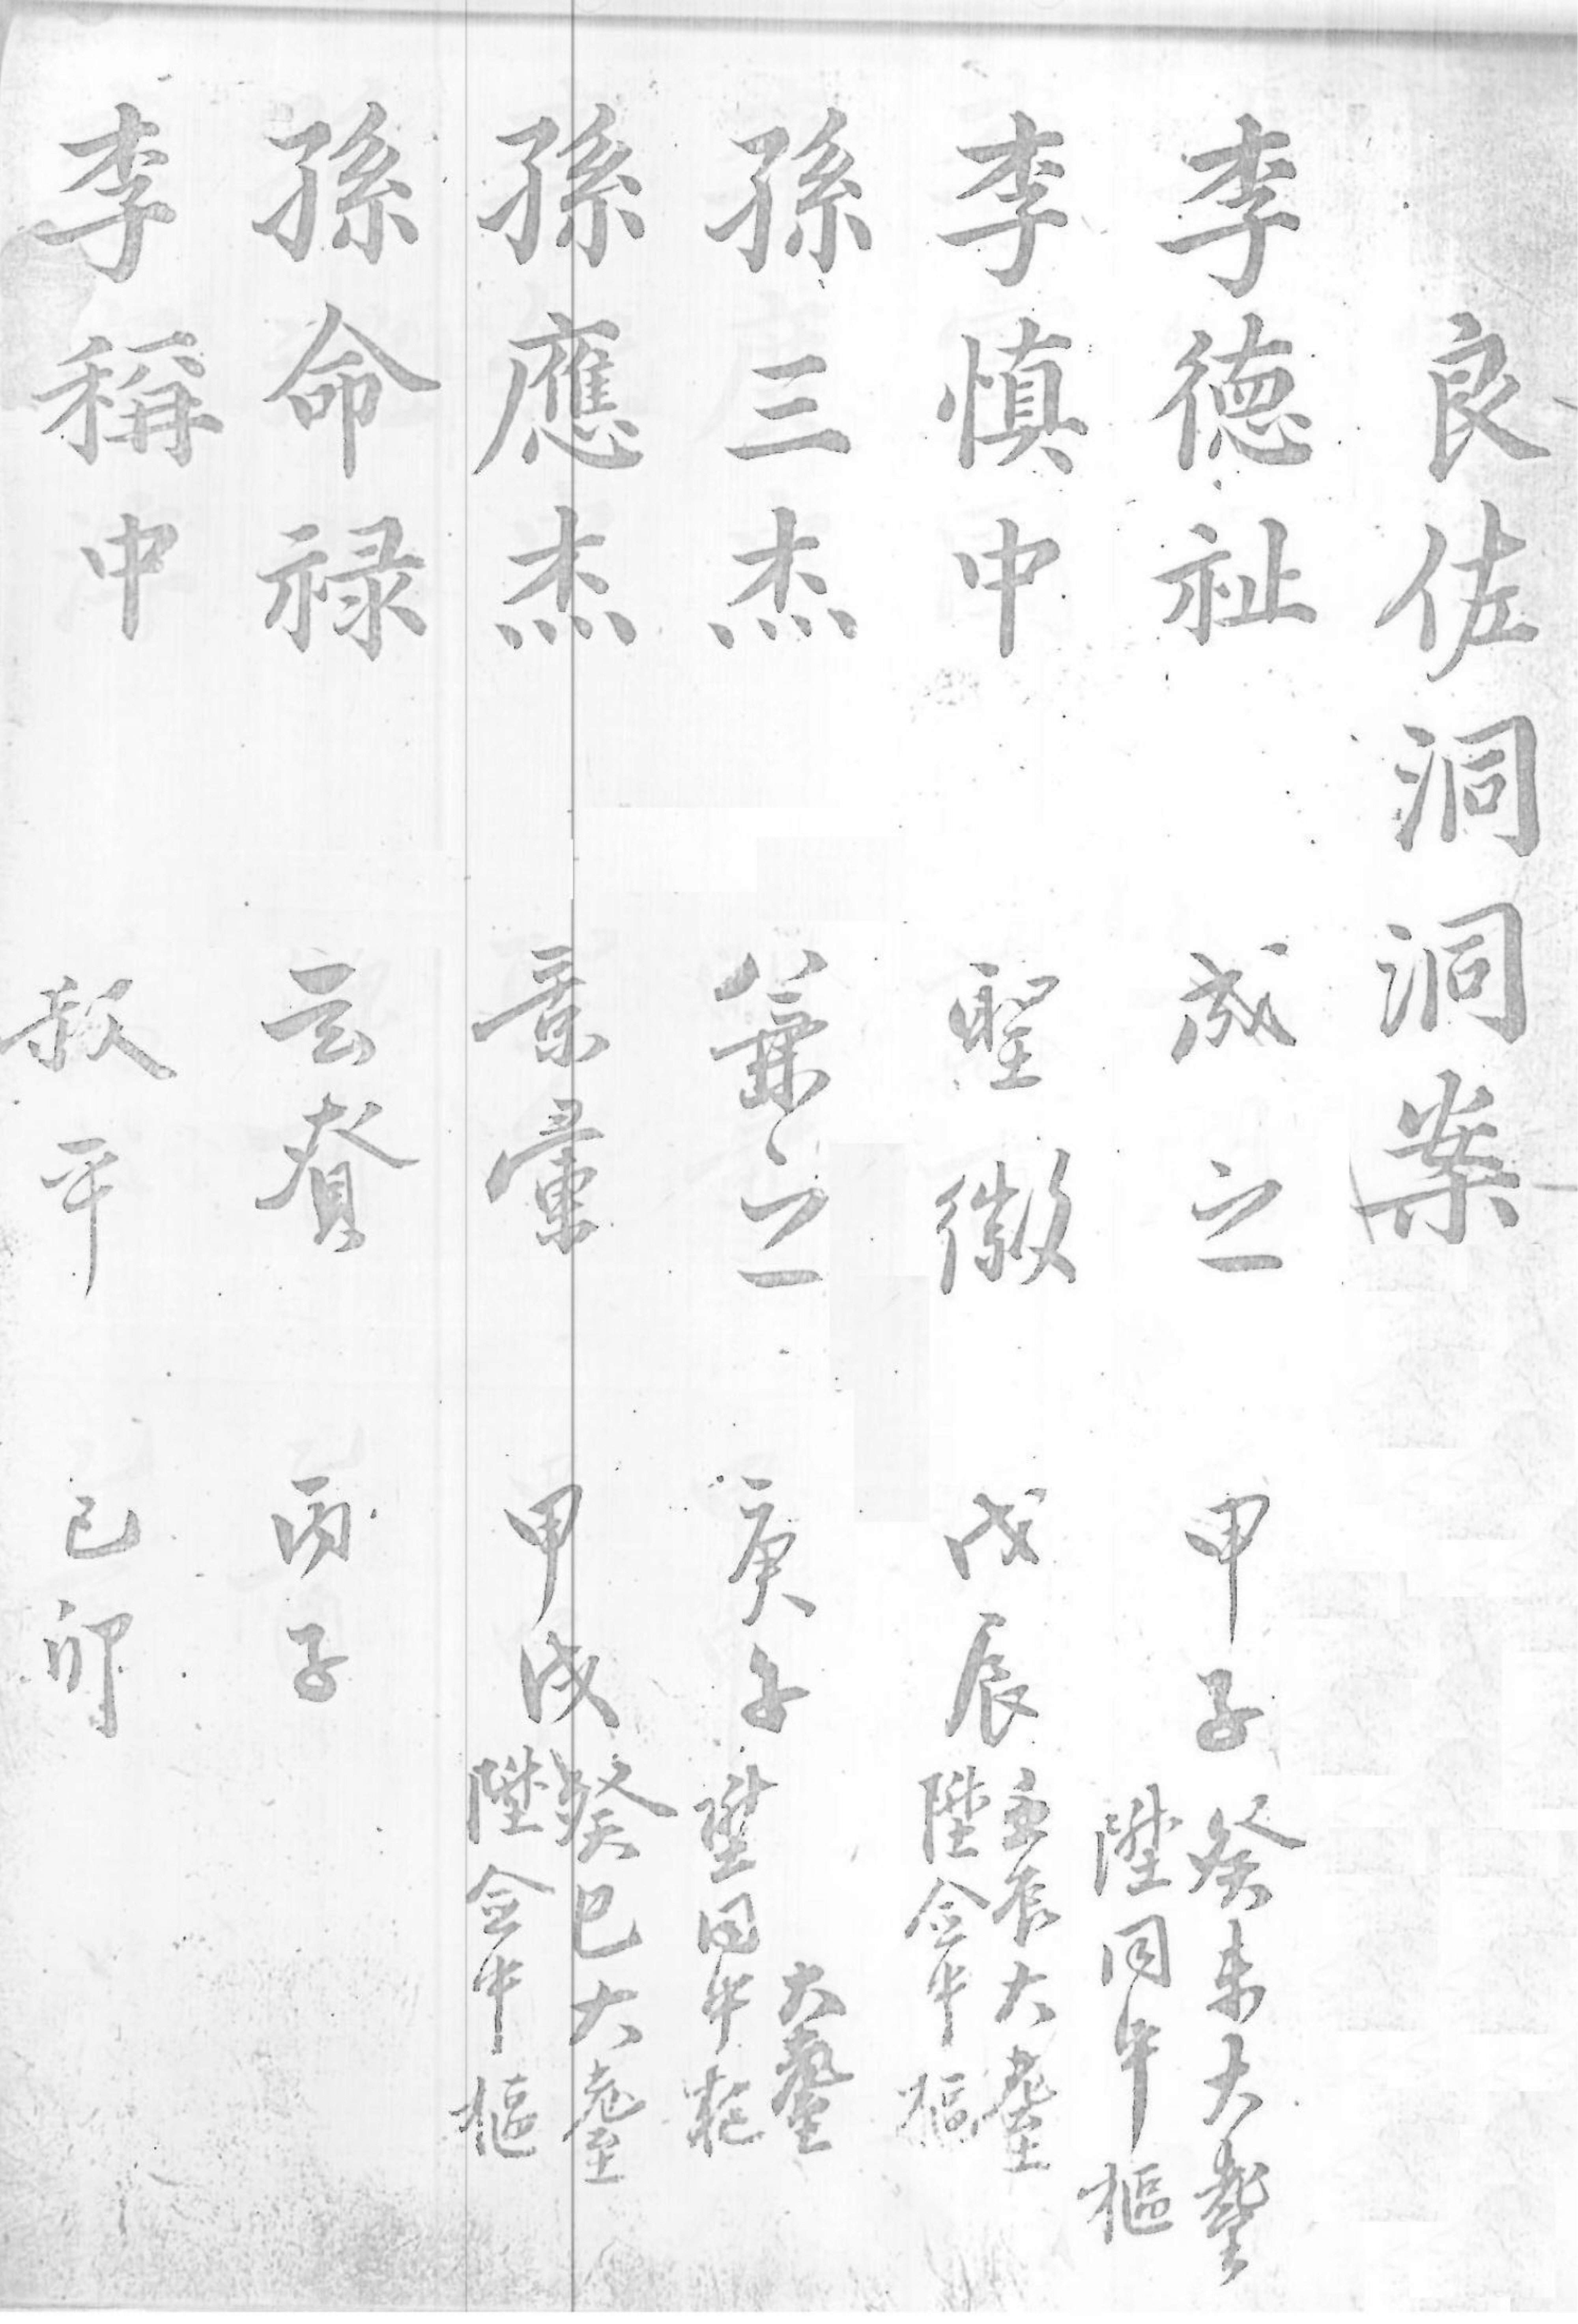 良佐洞洞案
李德祉 成之 甲子 癸未大耋 陞同中樞
李慎中 聖徽 戊辰 壬辰大耋 陞僉中樞
孫三杰 兼之 庚午 大耋 陞同中樞
孫應杰 景彙 甲戌 癸巳大耋 陞僉中樞
孫命祿 云賚 丙子
李稱中 叔平 己卯